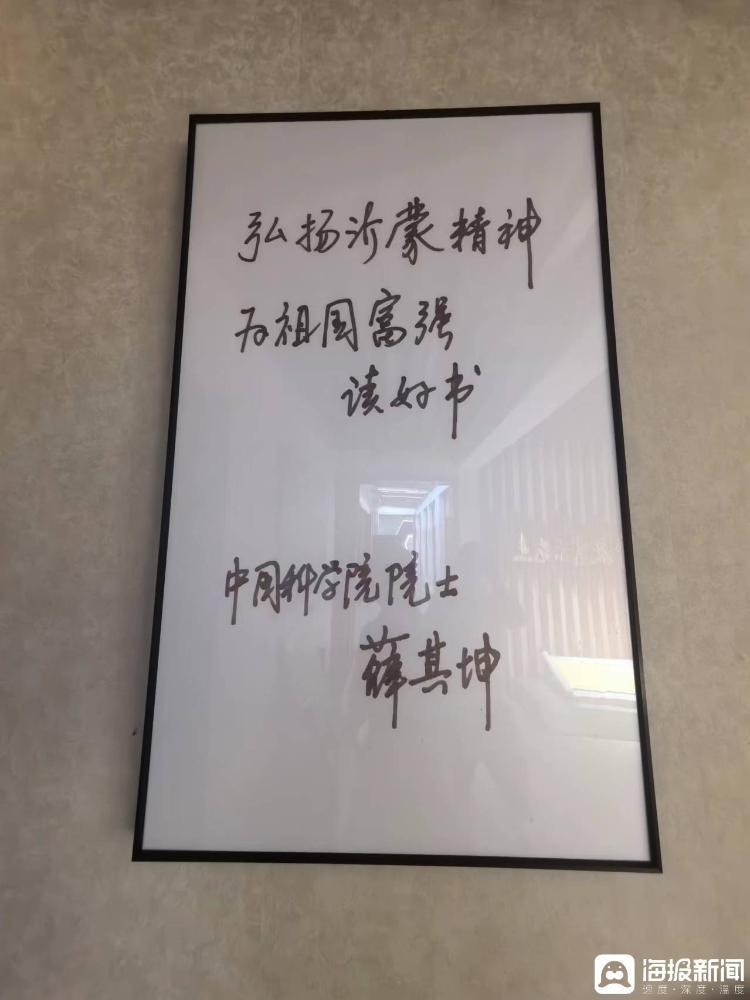 弘扬沂蒙精神
为祖国富强
读好书
中国科学院院士
薛其坤
海报新闻
速度·深度·温度